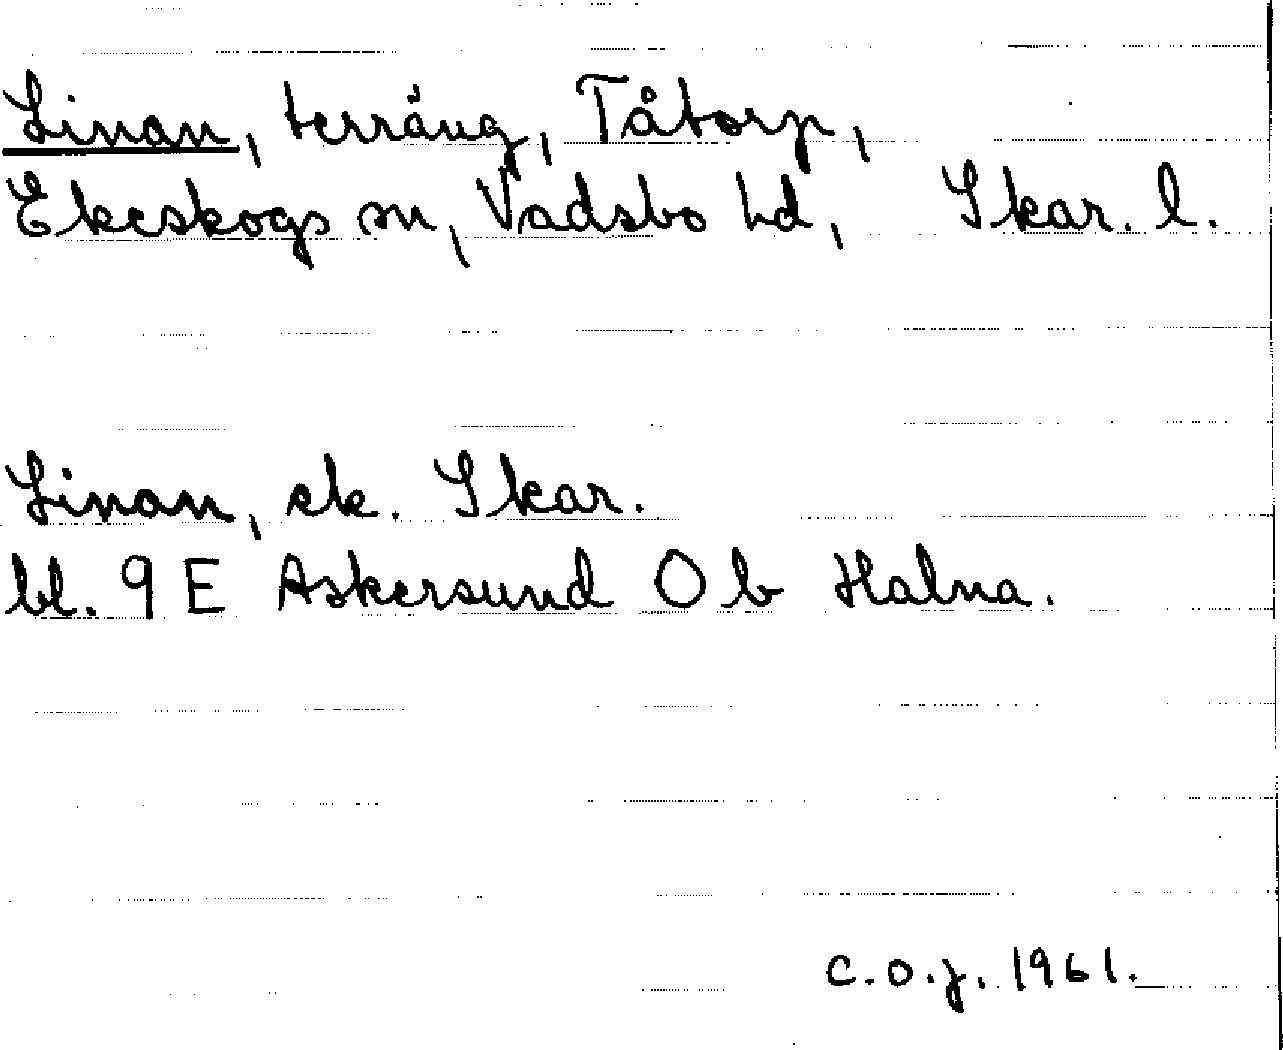 Linan, terräng, Tåtorp,
Ekeskogs sn, Vadsbo hd, Skar. l.
Linan, ek. Skar.
bl. 9 E Askersund O b Halna.
C.O.J. 1961.